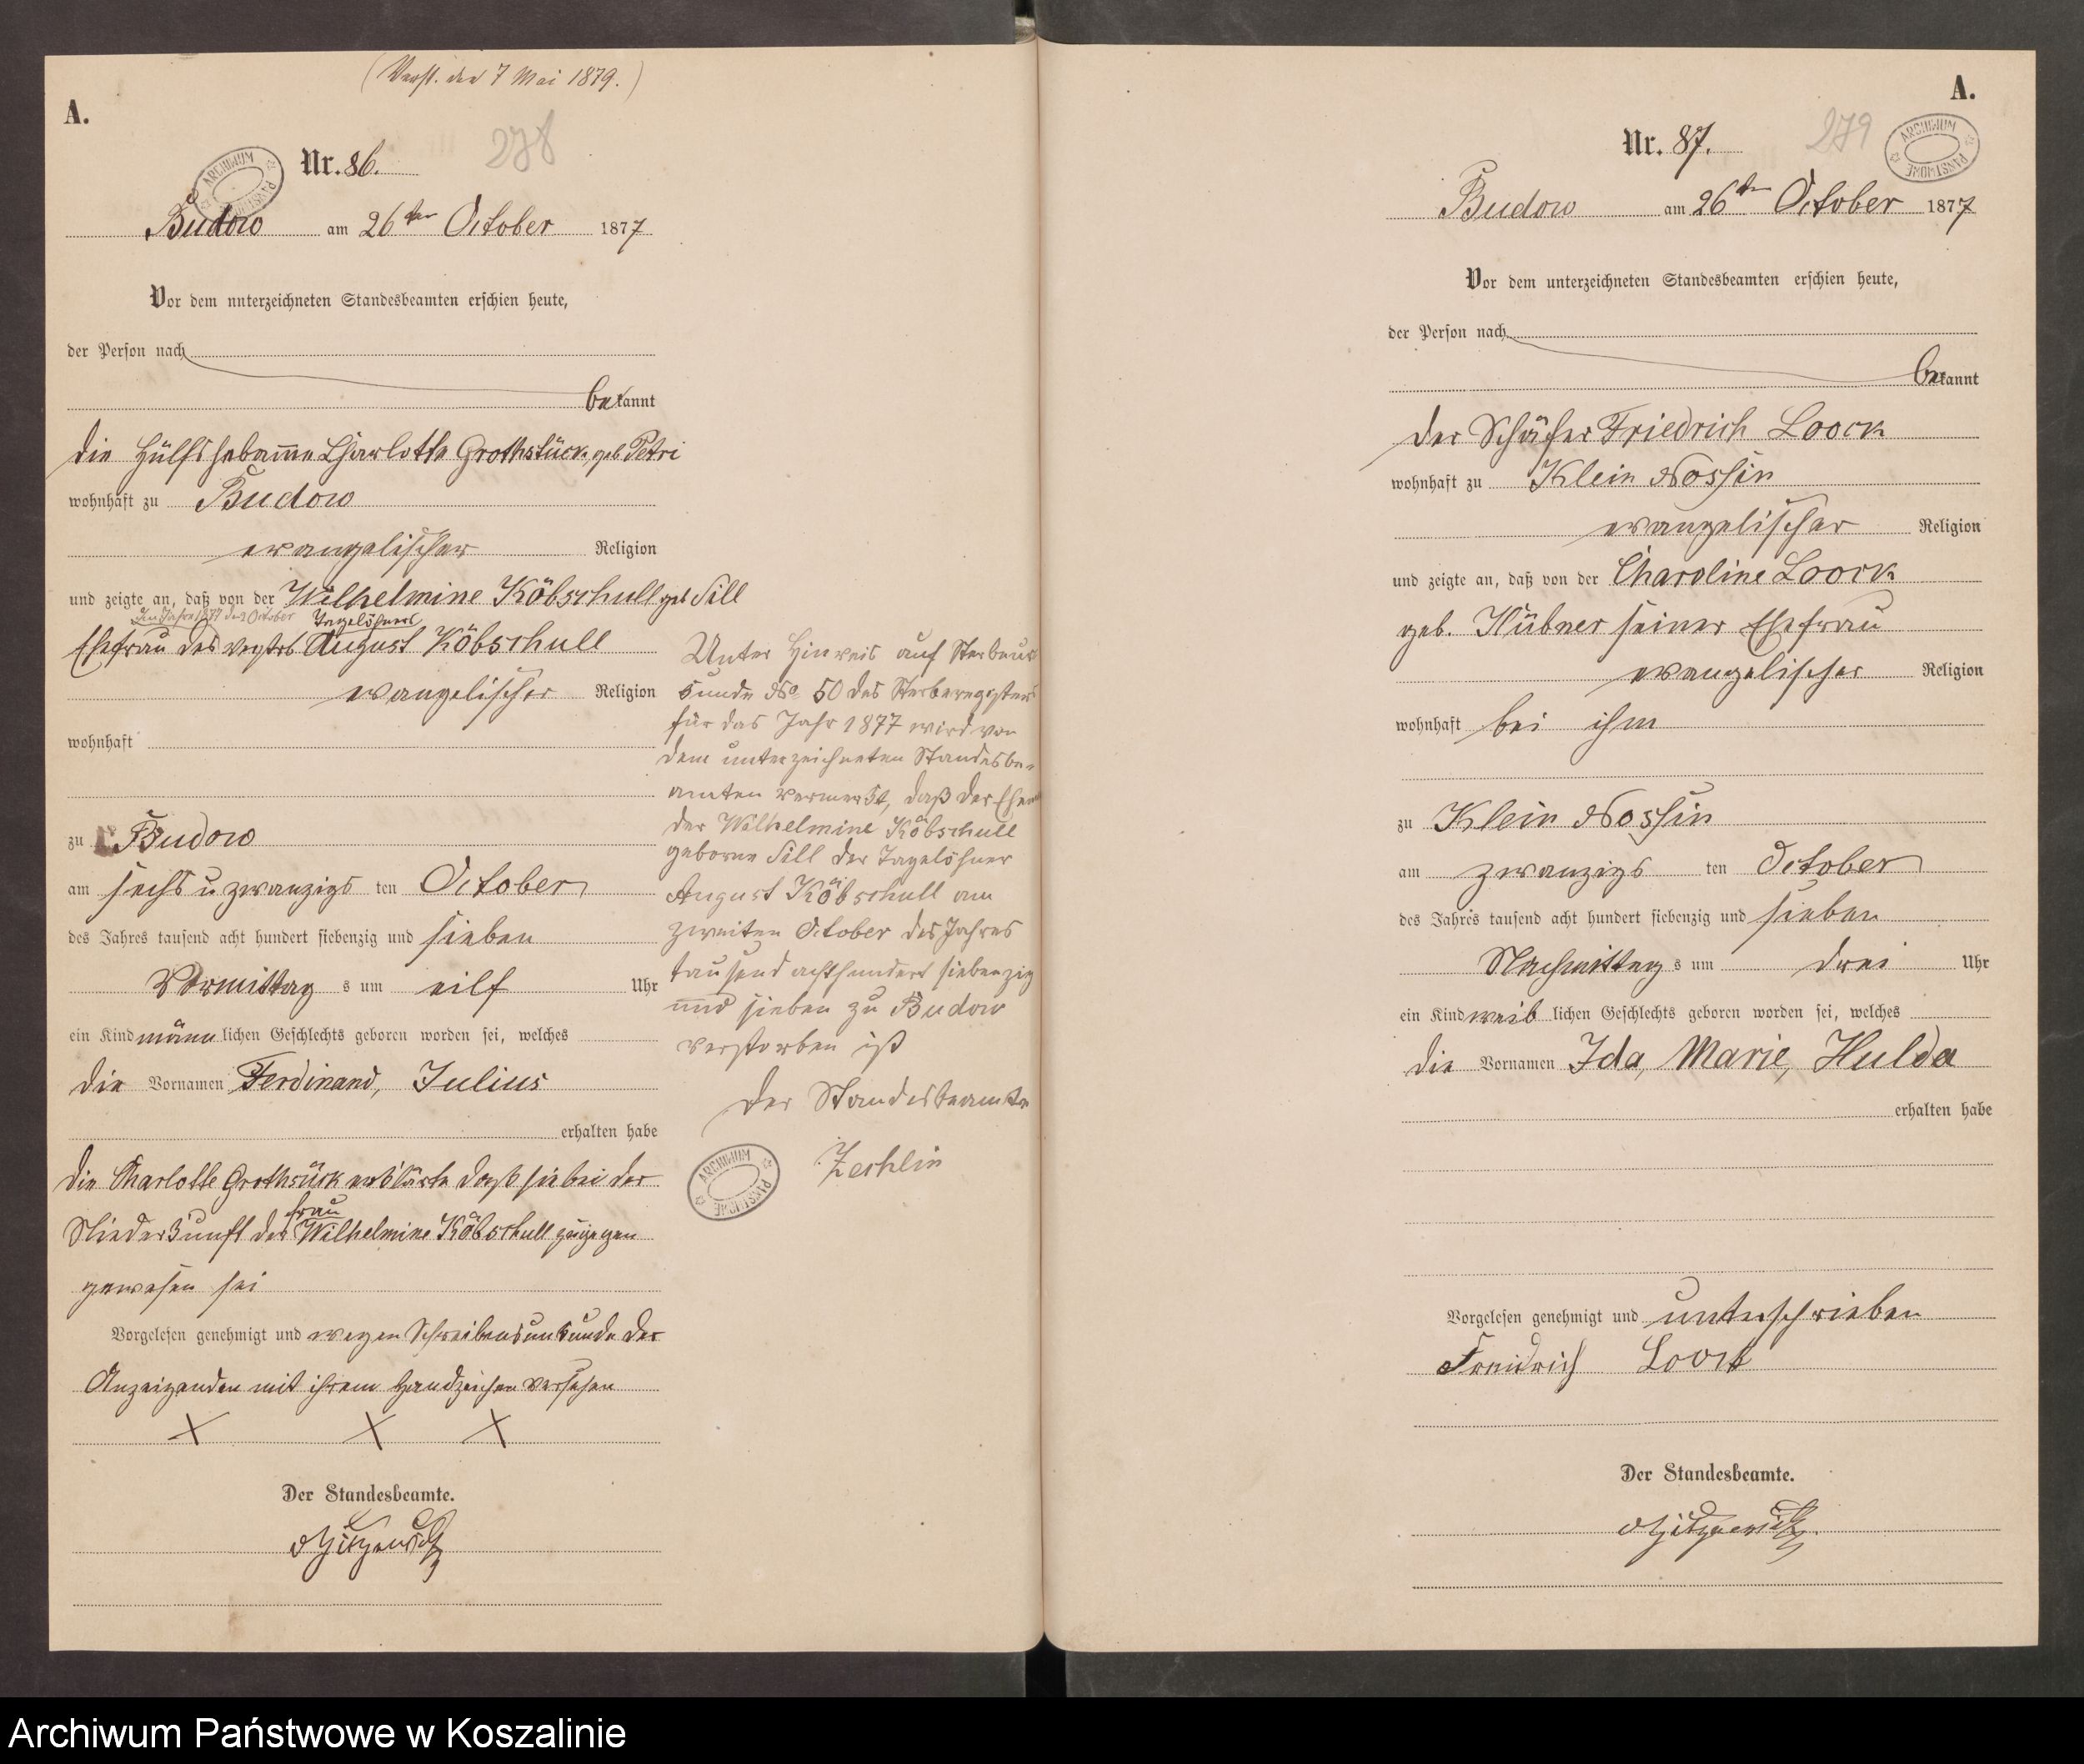 (Verst. den 7 Mai 1879.)
A.
278
ARCHIWUM PAŃSTWOWE
Nr. 86.
Budow am 26ten October 1877
Vor dem unterzeichneten Standesbeamten erschien heute,
der Person nach
bekannt
die Hülfshebamme Charlotte Grothstück, geb Petri
wohnhaft zu Budow
evangelischer Religion
und zeigte an, daß von der Wilhelmine Köbschull geb Sill
den Jahre 1877 den October Tagelöhners
Ehefrau des verstrb August Köbschull
evangelischer Religion
wohnhaft
zu Budow
am sechs u zwanzigs ten October
des Jahres tausend acht hundert siebenzig und sieben
Vormittag s um eilf Uhr
ein Kind männ lichen Geschlechts geboren worden sei, welches
die Vornamen Ferdinand, Julius
erhalten habe
Die Charlotte Grothsück erklärte daß sie bei der
frau
Niederkunft der Wilhelmine Köbschull zugegen
gewesen sei
Vorgelesen genehmigt und wegen Schreibensunkunde der
Anzeigenden mit ihrem Handzeichen versehen
X X X
Der Standesbeamte.
Unter Hinweis auf Sterbeur
kunde No 50 des Sterberegisters
für das Jahr 1877 wird von
dem unterzeichneten Standesbe-
amten vermerkt, daß der Ehem
der Wilhelmine Köbschull
geborne Sill der Tagelöhner
August Köbschull am
zweiten October des Jahres
tausend achthundert siebenzig
und sieben zu Budow
verstorben ist
Der Standesbeamte
Zechlin
ARCHIWUM PAŃSTWOWE
A.
279
ARCHIWUM PAŃSTWOWE
Nr. 87.
Budow am 26ten October 1877
Vor dem unterzeichneten Standesbeamten erschien heute,
der Person nach
bekannt
der Schäfer Friedrich Loock
wohnhaft zu Klein Nossin
evangelischer Religion
und zeigte an, daß von der Charoline Loock
geb. Hübner seiner Ehefrau
evangelischer Religion
wohnhaft bei ihm
zu Klein Nossin
am zwanzigs ten October
des Jahres tausend acht hundert siebenzig und sieben
Nachmittag s um drei Uhr
ein Kind weib lichen Geschlechts geboren worden sei, welches
die Vornamen Ida, Marie, Hulda
erhalten habe
Vorgelesen genehmigt und unterschrieben
Freidrich Loock
Der Standesbeamte.
Archiwum Państwowe w Koszalinie